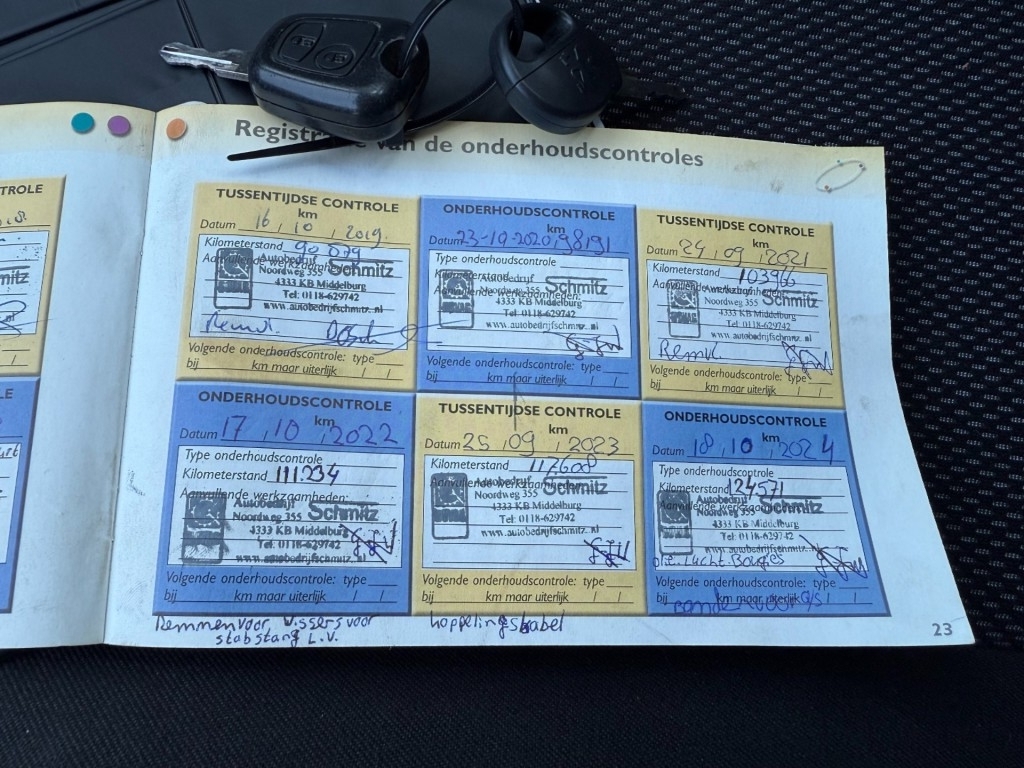 TROLE
Registra van de onderhoudscontroles
TUSSENTIJDSE CONTROLE
km
Datum 16, 10, 2019.
Kilometerstand 90 879
Autobedrijf Schmitz
Noordweg 355
4333 KB Middelburg
Tel: 0118-629742
www.autobedrijfschmitz.nl
Remvl.
Volgende onderhoudscontrole: type
bij km maar uiterlijk / /
ONDERHOUDSCONTROLE
km
Datum 23-10-2020, 98191
Type onderhoudscontrole
Kilometerstand
Aanvullende werkzaamheden:
Autobedrijf Schmitz
Noordweg 355
4333 KB Middelburg
Tel: 0118-629742
www.autobedrijfschmitz.nl
Volgende onderhoudscontrole: type
bij km maar uiterlijk / /
TUSSENTIJDSE CONTROLE
km
Datum 24, 09, 2021
Kilometerstand 103966
Aanvullende werkzaamheden:
Autobedrijf Schmitz
Noordweg 355
4333 KB Middelburg
Tel: 0118-629742
www.autobedrijfschmitz.nl
Remvl.
Volgende onderhoudscontrole: type
bij km maar uiterlijk / /
ONDERHOUDSCONTROLE
km
Datum 17, 10, 2022
Type onderhoudscontrole
Kilometerstand 111.234
Aanvullende werkzaamheden:
Autobedrijf Schmitz
Noordweg 355
4333 KB Middelburg
Tel: 0118-629742
www.autobedrijfschmitz.nl
Volgende onderhoudscontrole: type
bij km maar uiterlijk / /
Remmen voor, wissers voor
stabstang L.V.
TUSSENTIJDSE CONTROLE
km
Datum 25, 09, 2023
Kilometerstand 117.608
Aanvullende werkzaamheden:
Autobedrijf Schmitz
Noordweg 355
4333 KB Middelburg
Tel: 0118-629742
www.autobedrijfschmitz.nl
Volgende onderhoudscontrole: type
bij km maar uiterlijk / /
koppelingskabel
ONDERHOUDSCONTROLE
km
Datum 18, 10, 2024
Type onderhoudscontrole
Kilometerstand 124571
Aanvullende werkzaamheden:
Autobedrijf Schmitz
Noordweg 355
4333 KB Middelburg
Tel: 0118-629742
www.autobedrijfschmitz.nl
olie. Lucht. Bougies
Volgende onderhoudscontrole: type
bij km maar uiterlijk / /
23